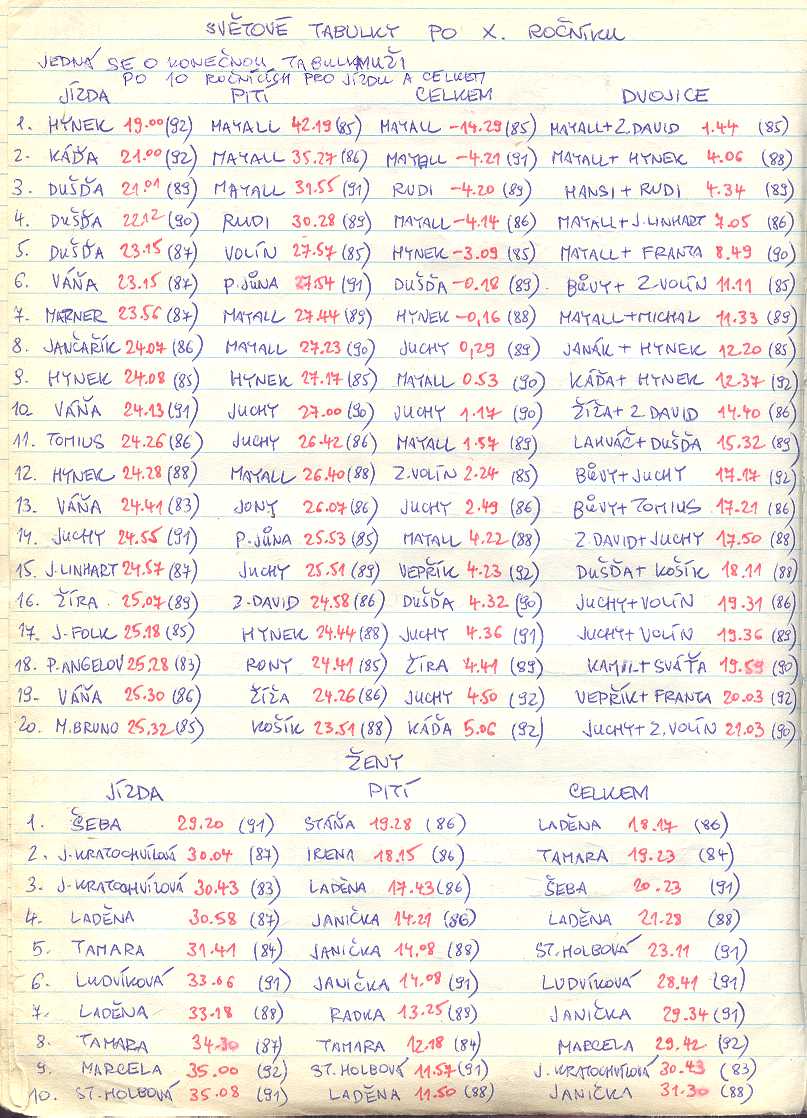 SVĚTOVÉ TABULKY PO X. ROČNÍKU
JEDNÁ SE O KONEČNOU TABULKU MUŽI
PO 10 ROČNÍCÍCH PRO JÍZDU A CELKEM
JÍZDA PITÍ CELKEM DVOJICE
1. HYNEK 19.00 (92) MAYALL 42.19 (85) MAYALL -14.29 (85) MAYALL + Z.DAVID 1.44 (85)
2. KÁĎA 21.00 (92) MAYALL 35.27 (86) MAYALL -4.21 (91) MAYALL + HYNEK 4.06 (88)
3. DUŠĎA 21.01 (89) MAYALL 31.55 (91) RUDI -4.20 (89) HANSI + RUDI 4.34 (89)
4. DUŠĎA 22.12 (90) RUDI 30.28 (89) MAYALL -4.14 (86) MAYALL + J.LINHART 7.05 (86)
5. DUŠĎA 23.15 (87) VOLÍN 27.57 (85) HYNEK -3.09 (85) MAYALL + FRANTA 8.49 (90)
6. VÁŇA 23.15 (87) P.JŮNA 27.54 (91) DUŠĎA -0.18 (89) BŮVY + Z.VOLÍN 11.11 (85)
7. MARNER 23.56 (87) MAYALL 27.44 (89) HYNEK -0,16 (88) MAYALL + MICHAL 11.33 (89)
8. JANČAŘÍK 24.07 (86) MAYALL 27.23 (90) JUCHY 0,29 (89) JANÁK + HYNEK 12.20 (85)
9. HYNEK 24.08 (85) HYNEK 27.17 (85) MAYALL 0.53 (90) KÁĎA + HYNEK 12.37 (92)
10. VÁŇA 24.13 (91) JUCHY 27.00 (90) JUCHY 1.17 (90) ŽÍŽA + Z.DAVID 14.40 (86)
11. TOMIUS 24.26 (86) JUCHY 26.42 (86) MAYALL 1.57 (89) LAHVÁČ + DUŠĎA 15.32 (89)
12. HYNEK 24.28 (88) MAYALL 26.40 (88) Z.VOLÍN 2.24 (85) BŮVY + JUCHY 17.17 (92)
13. VÁŇA 24.41 (83) JONY 26.07 (86) JUCHY 2.49 (86) BŮVY + TOMIUS 17.21 (86)
14. JUCHY 24.55 (91) P.JŮNA 25.53 (85) MAYALL 4.22 (88) Z.DAVID + JUCHY 17.50 (88)
15. J.LINHART 24.57 (87) JUCHY 25.51 (89) VEPŘÍK 4.23 (92) DUŠĎA + KOŠÍK 18.11 (88)
16. ŽÍRA 25.07 (89) Z.DAVID 24.58 (86) DUŠĎA 4.32 (90) JUCHY + VOLÍN 19.31 (86)
17. J.FOLK 25.18 (85) HYNEK 24.44 (88) JUCHY 4.36 (91) JUCHY + VOLÍN 19.36 (89)
18. P.ANGELOV 25.28 (83) RONY 24.41 (85) ŽÍRA 4.41 (89) KAMIL + SVÁŤA 19.59 (90)
19. VÁŇA 25.30 (86) ŽÍŽA 24.26 (86) JUCHY 4.50 (92) VEPŘÍK + FRANTA 20.03 (92)
20. M.BRUNO 25.32 (85) KOŠÍK 23.51 (88) KÁĎA 5.06 (92) JUCHY + Z.VOLÍN 21.03 (90)
ŽENY
JÍZDA PITÍ CELKEM
1. ŠEBA 29.20 (91) STÁŇA 19.28 (86) LADĚNA 18.17 (86)
2. J.KRATOCHVÍLOVÁ 30.04 (87) IRENA 18.15 (86) TAMARA 19.23 (84)
3. J.KRATOCHVÍLOVÁ 30.43 (83) LADĚNA 17.43 (86) ŠEBA 20.23 (91)
4. LADĚNA 30.58 (87) JANIČKA 14.21 (86) LADĚNA 21.28 (88)
5. TAMARA 31.41 (84) JANIČKA 14.08 (88) ST.HOLBOVÁ 23.11 (91)
6. LUDVÍKOVÁ 33.06 (91) JANIČKA 14.08 (91) LUDVÍKOVÁ 28.41 (91)
7. LADĚNA 33.18 (88) RADKA 13.25 (88) JANIČKA 29.34 (91)
8. TAMARA 34.30 (87) TAMARA 12.18 (84) MARCELA 29.42 (92)
9. MARCELA 35.00 (92) ST.HOLBOVÁ 11.57 (91) J.KRATOCHVÍLOVÁ 30.43 (83)
10. ST.HOLBOVÁ 35.08 (91) LADĚNA 11.50 (88) JANIČKA 31.30 (88)